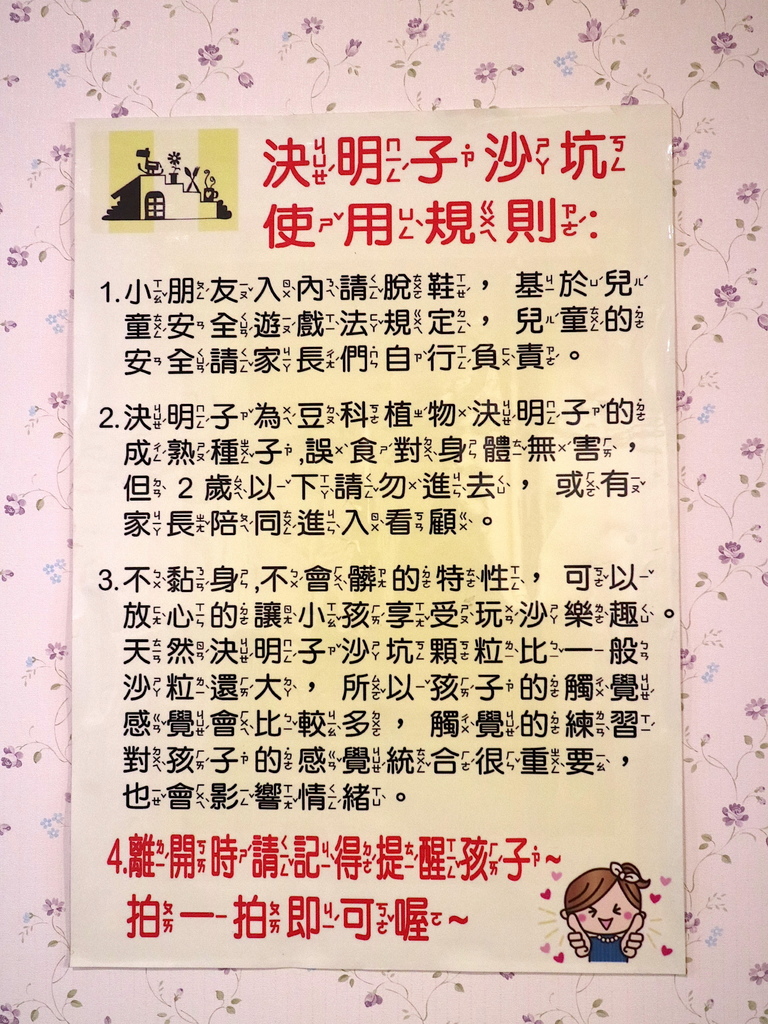 決明子沙坑
使用規則：
1.小朋友入內請脫鞋，基於兒
童安全遊戲法規定，兒童的
安全請家長們自行負責。
2.決明子為豆科植物決明子的
成熟種子,誤食對身體無害，
但2歲以下請勿進去，或有
家長陪同進入看顧。
3.不黏身,不會髒的特性，可以
放心的讓小孩享受玩沙樂趣。
天然決明子沙坑顆粒比一般
沙粒還大，所以孩子的觸覺
感覺會比較多，觸覺的練習
對孩子的感覺統合很重要，
也會影響情緒。
4.離開時請記得提醒孩子~
拍一拍即可喔~